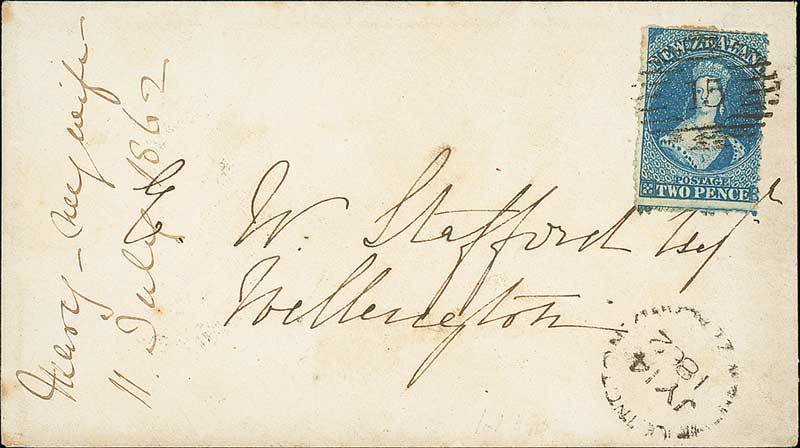 Mary - my wife
11. July 1862
NEW ZEALAND
15
POSTAGE
TWO PENCE
E. W. Stafford Esqr
Wellington
JY 14
1862